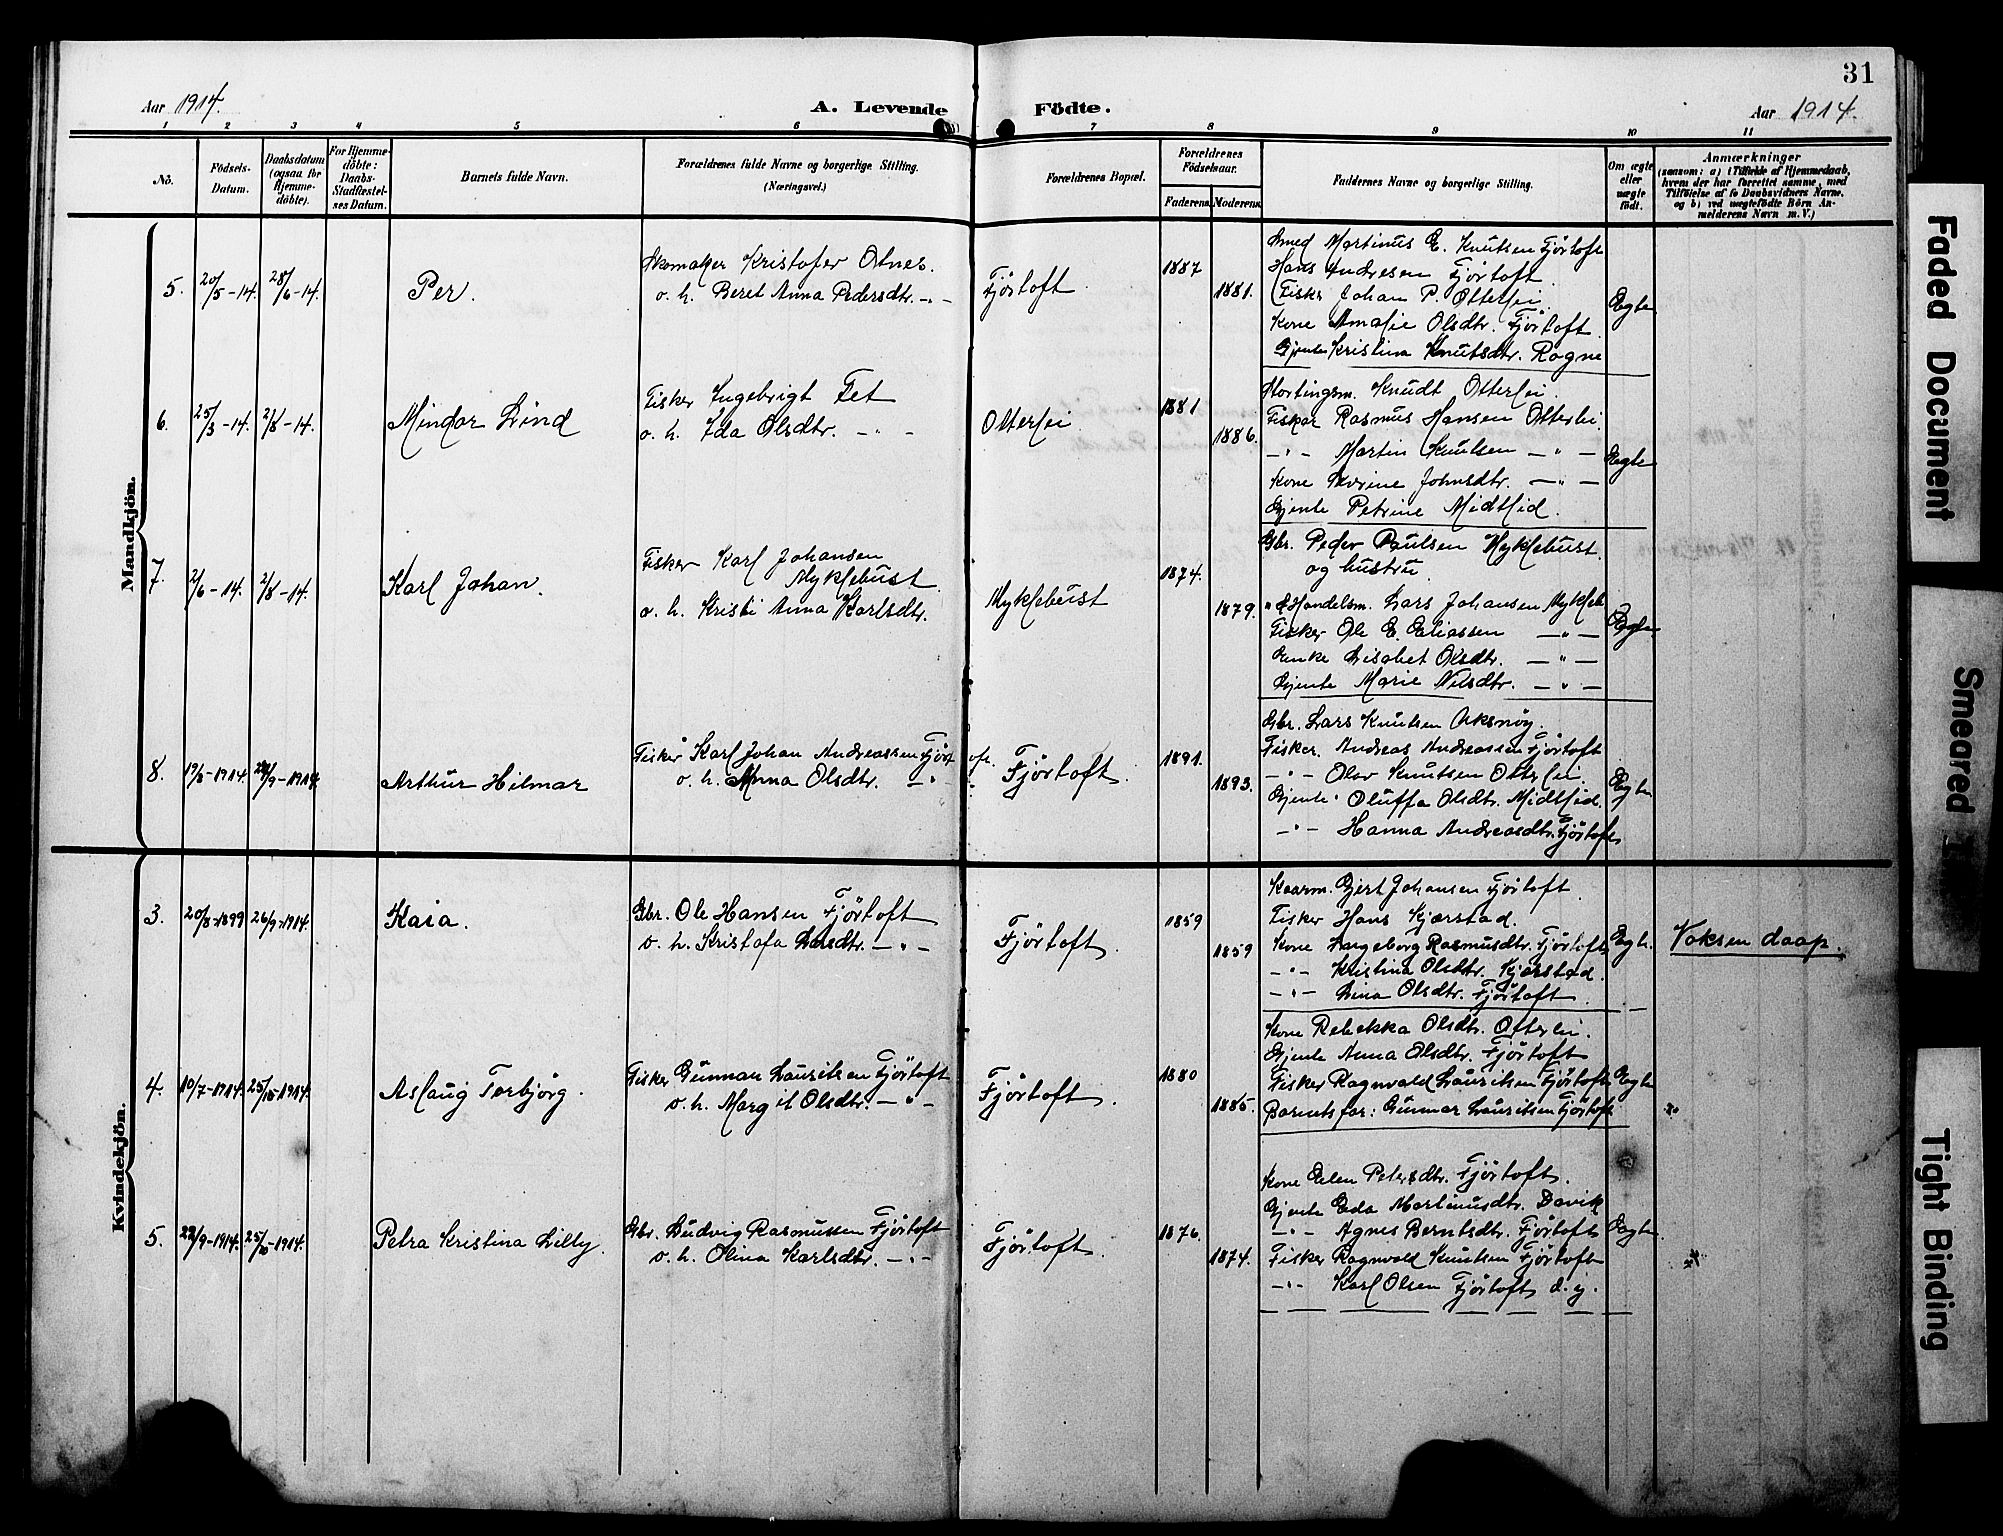 31
Aar 1914.
A. Levende Födte.
Aar 1914.
1 2 3 4 5 6 7 8 9 10 11
No.
Födsels-Datum.
Daabsdatum (ogsaa for Hjemme-döbte).
For Hjemme-döbte: Daabs-Stadfæstel-ses Datum.
Barnets fulde Navn.
Forældrenes fulde Navne og borgerlige Stilling.
(Næringsvei.)
Forældrenes Bopæl.
Forældrenes Födselsaar.
Faderens. Moderens.
Faddernes Navne og borgerlige Stilling.
Om ægte eller uægte födt.
Anmærkninger
(saasom: a) i Tilfælde af Hjemmedaab, hvem der har forrettet samme, med Tilföielse af to Daabsvidners Navne, og b) ved uægtefödte Börn An-melderens Navn m. V.)
Mandkjön.
5. 20/5-14. 28/6-14. Per.
Skomaker Kristofer Otnes.
o. h. Beret Anna Pedersdtr. -"-
Fjörtoft 1887 1881.
Smed Martinus E. Knutsen Fjörtoft
Hans Andresen Fjörtoft
Fisker Johan P. Otterlei
Kone Amalie Olsdtr. Fjörtoft
Gjente Kristina Knutsdtr. Rogne
Ægte
6. 25/5-14. 2/8-14. Mindor Lind
Fisker Ingebrigt Fet
o. h. Ida Olsdtr. -"-
Otterlei 1881 1886.
Stortingsm. Knudt Otterlei.
Fisker Rasmus Hansen Otterlei.
-"- Martin Knutsen -"-
Kone Johnsdtr. -"-
Gjente Petrine Midtlid.
Ægte
7. 2/6-14. 2/8-14. Karl Johan.
Fisker Karl Johansen
Myklebust
o. h. Kristi Anna Karlsdtr.
Myklebust 1874. 1879.
Gbr. Peder Paulsen Myklebust.
og hustru
Handelsm. Lars Johansen Mykleb
Fisker Ole E. Eliassen -"-
Enke Lisabet Olsdtr. -"-
Gjente Marie Nilsdtr. -"-
Ægte
8. 19/8-1914. /9-1914. Arthur Hilmar
Fisker Karl Johan Andreassen Fjörtoft.
o. h. Anna Olsdtr. -"-
Fjörtoft. 1891. 1893.
Gbr. Lars Knutsen Uksnöy.
Fisker. Andreas Andreassen Fjörtoft
-"- Olav Knutsen Otterlei.
Gjente Oluffa Olsdtr. Midtlid.
-"- Hanna Andreasdtr. Fjörtoft
Ægte
Kvindekjön.
3. 20/8-1899 26/9-1914. Kaia.
Gbr. Ole Hansen Fjörtoft
o. h. Kristofa Larsdtr. -"-
Fjörtoft. 1859 1859
Kaarm. Gjert Johansen Fjörtoft
Fisker Hans Kjærstad.
Kone Ingeborg Rasmusdtr. Fjörtoft
-"- Kristina Olsdtr. Kjærstad.
-"- Lina Olsdtr. Fjörtoft.
Ægte.
Voksen daap.
4. 10/7-1914. 25/10-1914. Aslaug Torbjörg.
Fisker Gunnar Lauritsen Fjörtoft
o. h. Margit Olsdtr. -"-
Fjörtoft. 1880 1885.
Kone Rebekka Olsdtr. Otterlei.
Gjente Anna Olsdtr. Fjörtoft
Fisker Ragnvald Lauritsen Fjörtoft
Barnets far: Gunnar Lauritsen Fjörtoft
Ægte
5. 22/9-1914. 25/10-1914. Petra Kristina Lilly.
Gbr. Ludvig Rasmussen Fjörtoft
o. h. Olina Karlsdtr. -"-
Fjörtoft. 1876 1874.
Kone Elen Petersdtr. Fjörtoft.
Gjente Eda Martinusdtr. Davik
-"- Agnes Berntsdtr. Fjörtoft
Fisker Ragnvald Knutsen Fjörtoft
-"- Karl Olsen Fjörtoft d. y.
Ægte
Faded Document
Smeared
Tight Binding